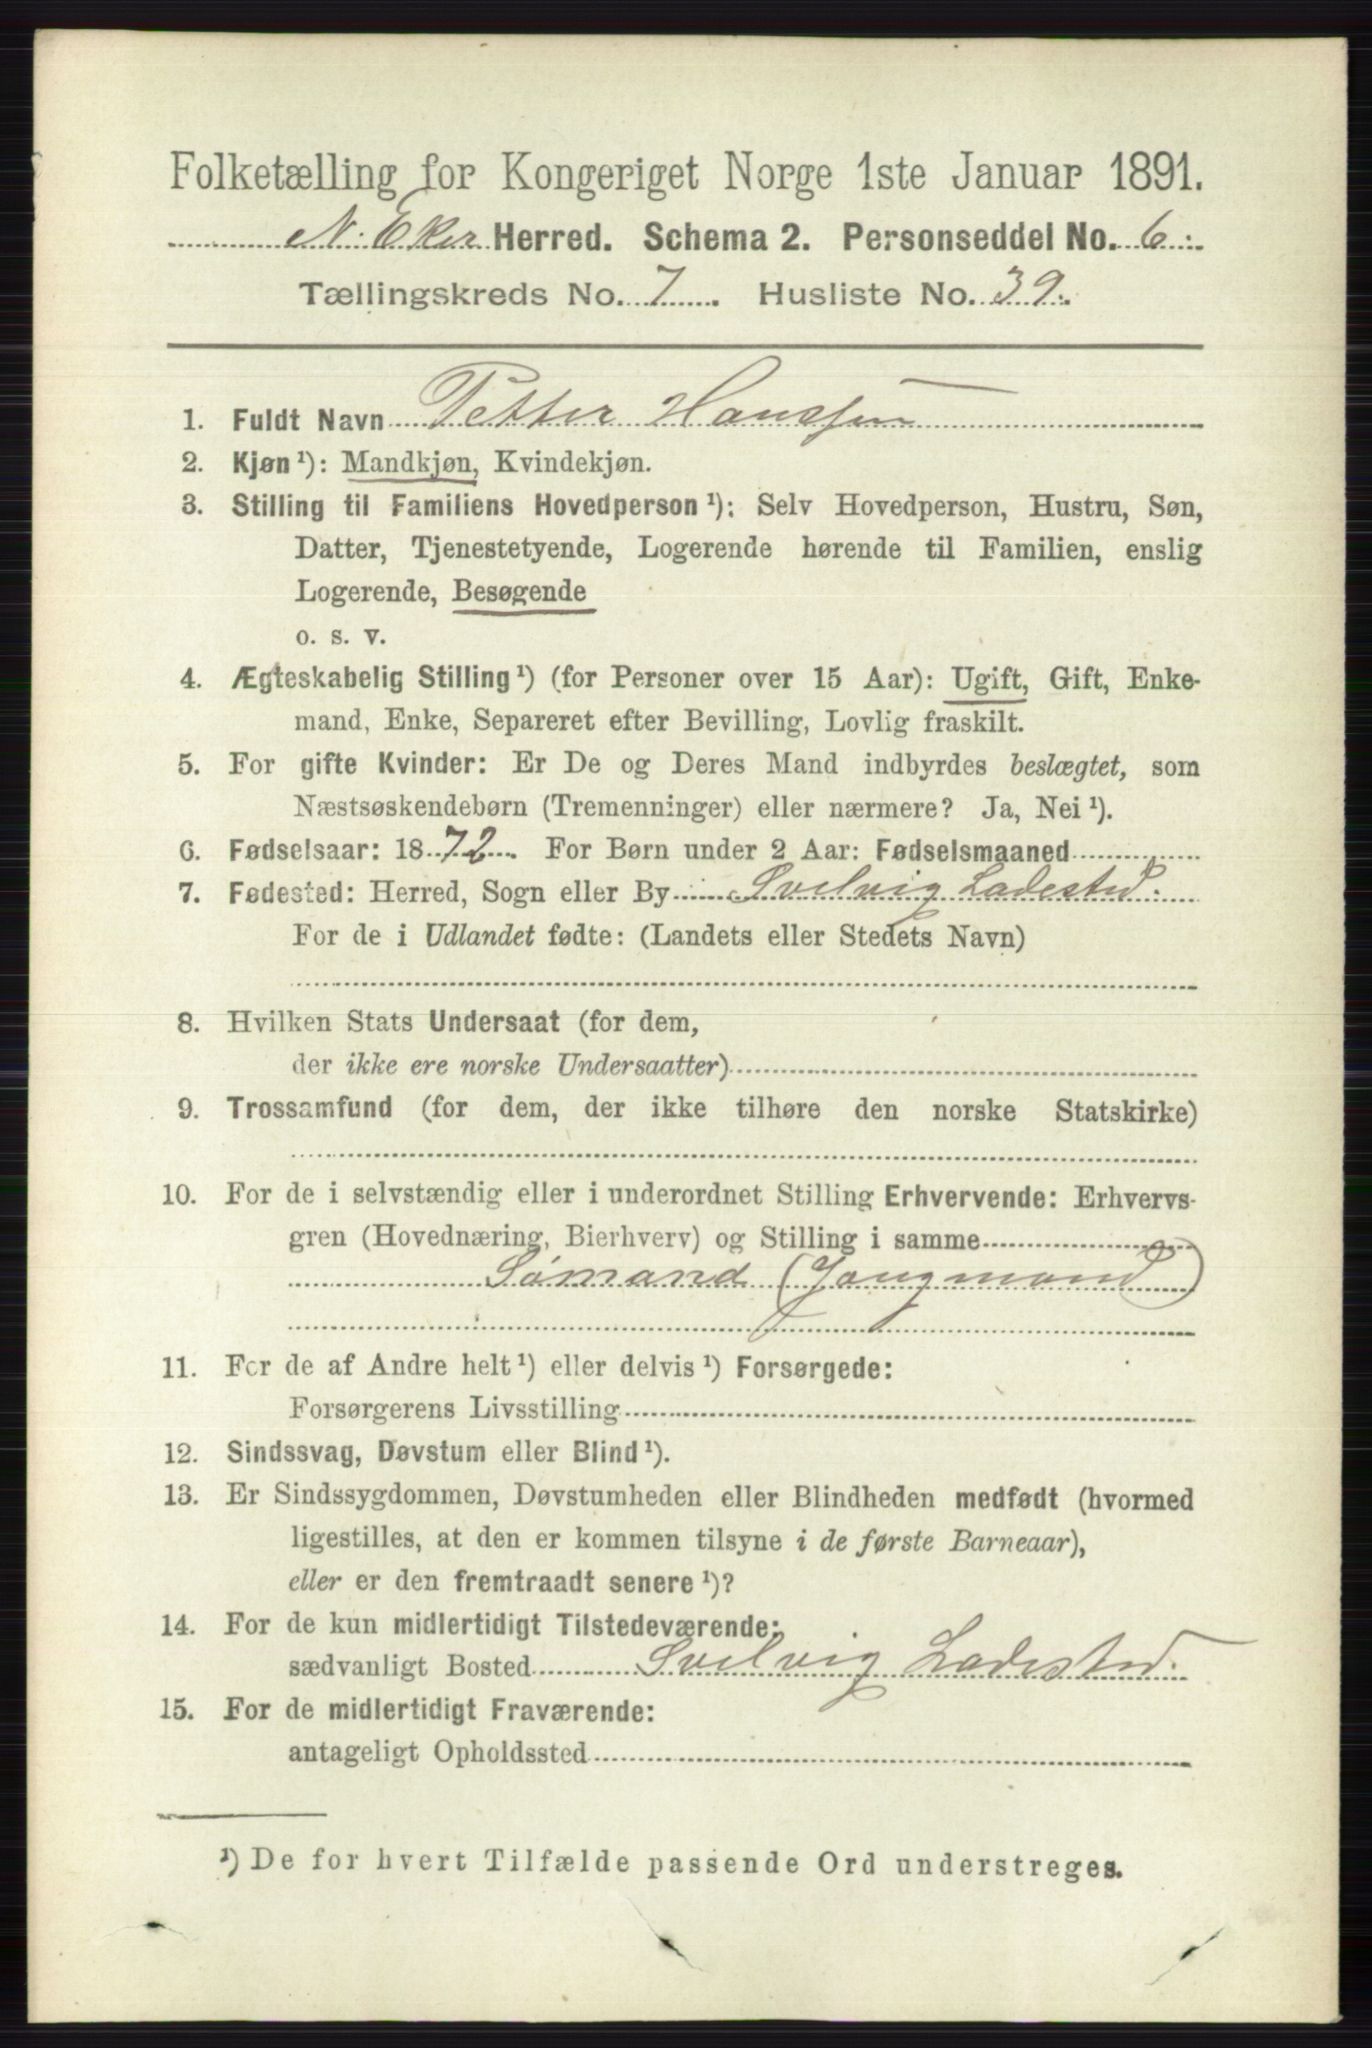 Folketælling for Kongeriget Norge 1ste Januar 1891.
N. Eker Herred. Schema 2. Personseddel No. 6.
Tællingskreds No. 7. Husliste No. 39.
1. Fuldt Navn Petter Hanssen
2. Kjøn ¹): Mandkjøn, Kvindekjøn.
3. Stilling til Familiens Hovedperson ¹): Selv Hovedperson, Hustru, Søn,
Datter, Tjenestetyende, Logerende hørende til Familien, enslig
Logerende, Besøgende
o. s. v.
4. Ægteskabelig Stilling ¹) (for Personer over 15 Aar): Ugift, Gift, Enke-
mand, Enke, Separeret efter Bevilling, Lovlig fraskilt.
5. For gifte Kvinder: Er De og Deres Mand indbyrdes beslægtet, som
Næstsøskendebørn (Tremenninger) eller nærmere? Ja, Nei ¹).
6. Fødselsaar: 1872. For Børn under 2 Aar: Fødselsmaaned
7. Fødested: Herred, Sogn eller By Svelvig Ladested.
For de i Udlandet fødte: (Landets eller Stedets Navn)
8. Hvilken Stats Undersaat (for dem,
der ikke ere norske Undersaatter)
9. Trossamfund (for dem, der ikke tilhøre den norske Statskirke)
10. For de i selvstændig eller i underordnet Stilling Erhvervende: Erhvervs-
gren (Hovednæring, Bierhverv) og Stilling i samme
Sømand (Jougmand)
11. For de af Andre helt ¹) eller delvis ¹) Forsørgede:
Forsørgerens Livsstilling
12. Sindssvag, Døvstum eller Blind ¹).
13. Er Sindssygdommen, Døvstumheden eller Blindheden medfødt (hvormed
ligestilles, at den er kommen tilsyne i de første Barneaar),
eller er den fremtraadt senere ¹)?
14. For de kun midlertidigt Tilstedeværende:
sædvanligt Bosted Svelvig Ladested.
15. For de midlertidigt Fraværende:
antageligt Opholdssted
¹) De for hvert Tilfælde passende Ord understreges.